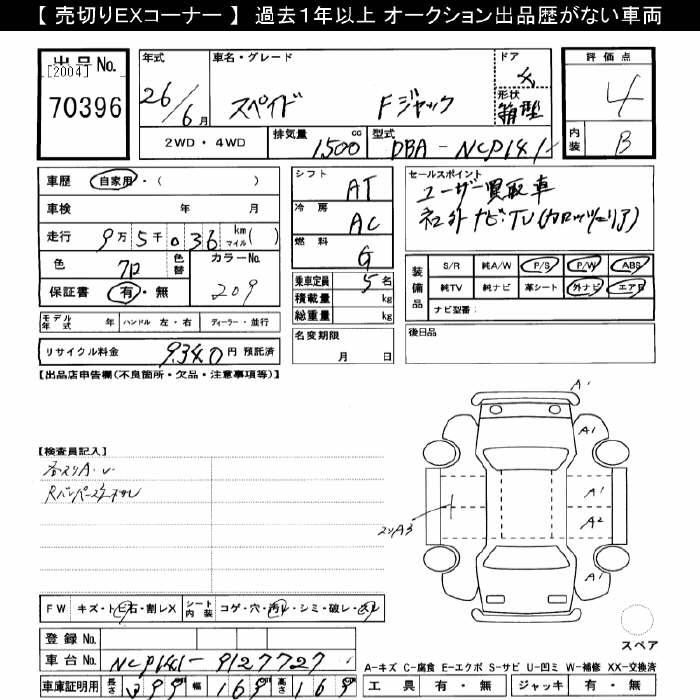 【 売切りEXコーナー 】 過去1年以上 オークション出品歴がない車両
出品No.
[2004]
70396
年式
26/6月
車名・グレード
スペイド Fジャック
ドア
形状
箱型
評価点
4
内装
B
2WD・4WD
排気量
1500cc
型式
DBA-NCP141-
車歴
自家用・( )
車検 年 月
走行
9万5千036 km マイル( )
色
クロ
色替
カラーNo.
209
保証書
有・無
モデル年式 年
ハンドル 左・右
ディーラー・並行
リサイクル料金 9340円 預託済
シフト
AT
冷房
AC
燃料
G
乗車定員 5名
積載量 kg
総重量 kg
名変期限
月 日
セールスポイント
ユーザー買取車
社外ナビ・TV(カロッツェリア)
装備品
S/R 純A/W P/S P/W ABS
純TV 純ナビ 革シート 外ナビ エアB
ナビ型番:
後日品
【出品店申告欄(不良箇所・欠品・注意事項等)】
【検査員記入】
各スリA・U
F W キズ・トビ石・割レX
シート内装 コゲ・穴・汚レ・シミ・破レ・スレ
登録 No.
車台No. NCP141-9127727
車庫証明用 長さ 399 幅 169 高さ 169
A'
A1
A'
A2
スリA3
A1
スペア
A-キズ C-腐食 E-エクボ S-サビ U-凹ミ W-補修 XX-交換済
工具 有・無 ジャッキ 有・無